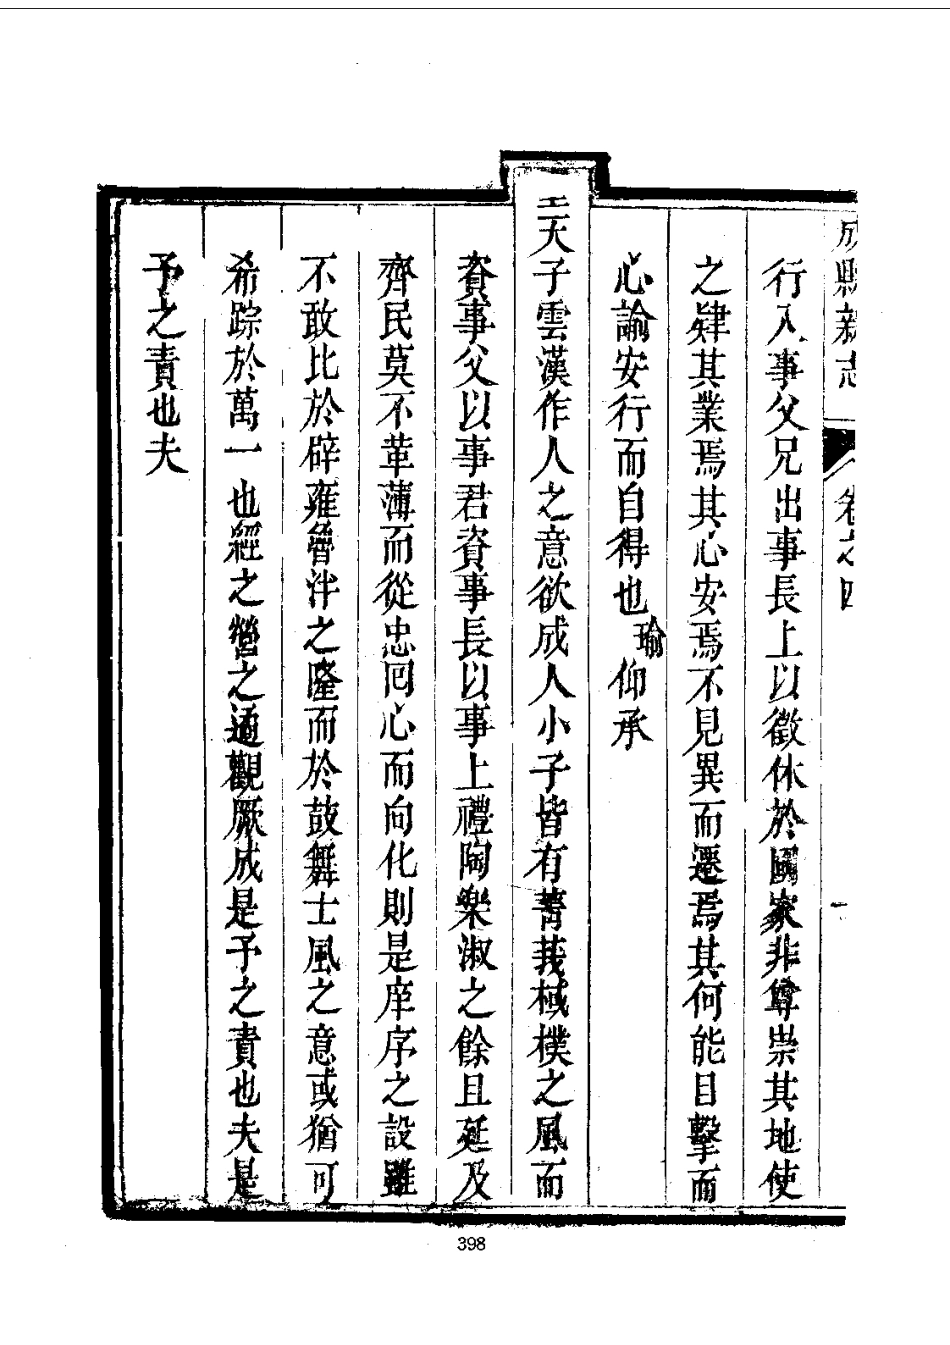 成縣新志 卷之四
行入事父兄出事長上以徵休於國家非尊崇其地使
之肄其業焉其心安焉不見異而遷焉其何能目擊而
心諭安行而自得也瑜仰承
聖天子雲漢作人之意欲成人小子皆有菁莪棫樸之風而
資事父以事君資事長以事上禮陶樂淑之餘且延及
齊民莫不革薄而從忠囘心而向化則是庠序之設雖
不敢比於辟雍疊泮之隆而於鼓舞士風之意或猶可
希踪於萬一也經之營之遹觀厥成是予之責也夫是
予之責也夫
398